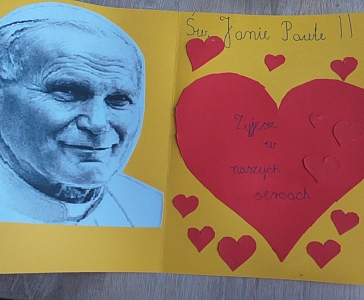 Św. Janie Pawle II
Żyjesz
w
naszych
sercach